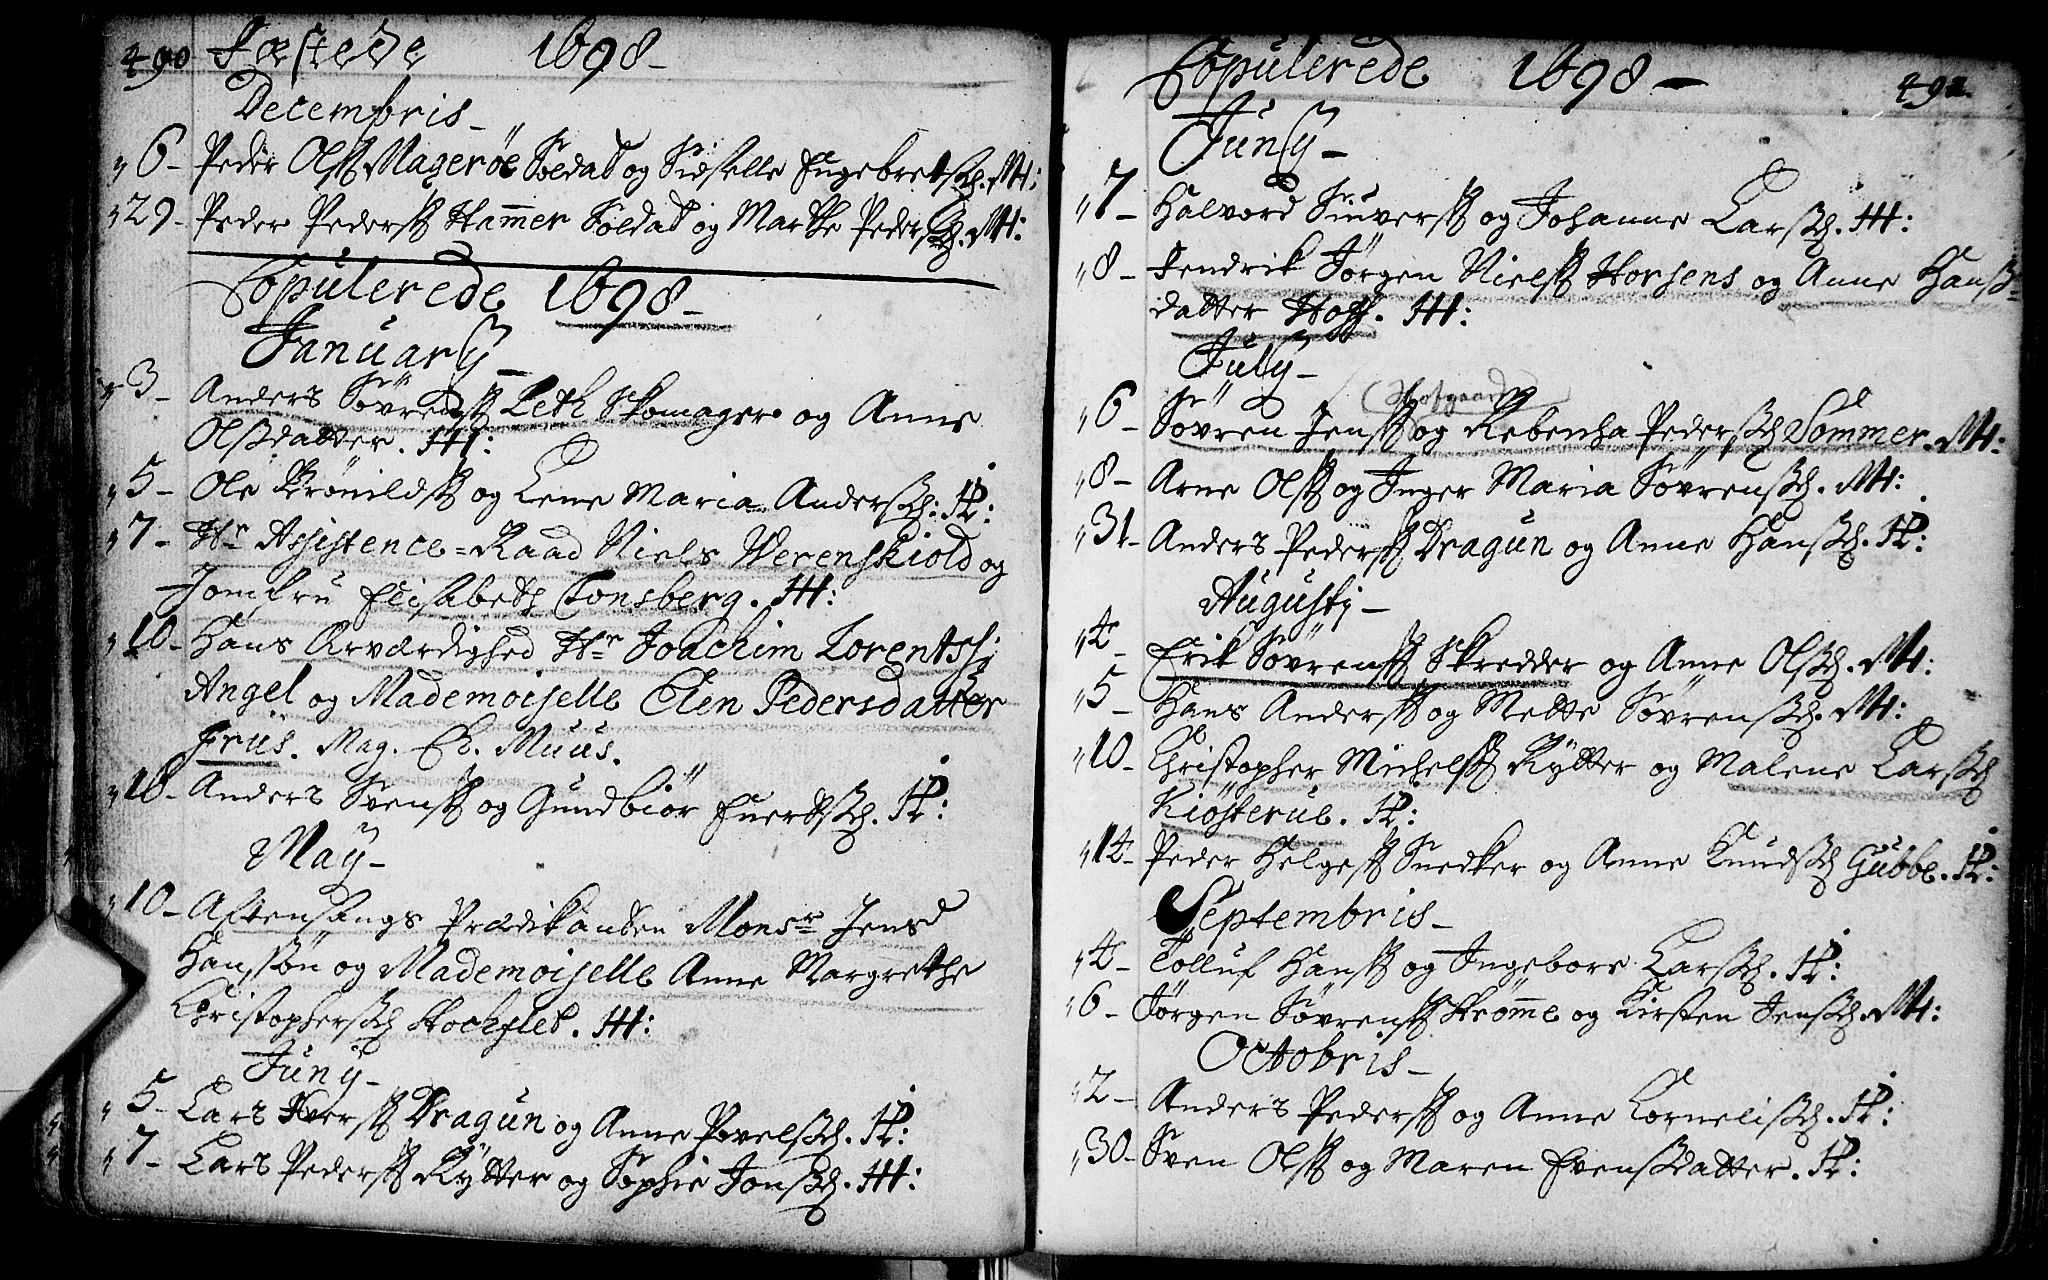 490 Fæstede 1698
Decembris
6 Peder Olss Magerøe Soldat og Sidselle Engebretsd. M:
29 Peder Pederss Hammer Soldat og Marthe Pedersd. M:
Copulerede 1698
January
3 Anders Søvrenss Leth Skomager og Anne
Olssdatter. H:
5 Ole Trønildss og Lene Maria Anderssd: P:
7 Hr Assistence-Raad Niels Werenskiold og
Jomfru Elisabeth Tonsberg. H:
10 Hans Ærværdighed Hr Joachim Lorentss:
Angel og Mademoiselle Elen Pedersdatter
Friis. Mag. E. Muus.
18 Anders Svenss og Gundbiør Euertssd. P:
May
10 Aftensangs Prædikanten Monsr Jens
Hanssøn og Mademoiselle Anne Margrethe
Christopherssd Stockflet. H:
Juny
5 Lars Iverss Dragun og Anne Povelssd. P:
7 Lars Pederss Rytter og Sophie Jonssd. H:
Copulerede 1698 491.
Juny
7 Halvord Siuverss og Johanne Larssd. H:
8 Fendrik Jørgen Nielss Horsens og Anne Hanss-
datter Hoff. H:
July
(Hofgaard)
6 Søvren Jenss og Rebencha Pederssd Sommer. M:
8 Arne Olss og Inger Maria Søvrenssd. M:
31 Anders Pederss Dragun og Anne Hanssd. P:
Augusti
4 Erik Søvrenss Skredder og Anne Olssd. M:
5 Hans Anderss og Mette Søvrenssd. M:
10 Christopher Michelss Rytter og Malene Larssd
Kiøsterud. P:
14 Peder Helgess Snedker og Anne Knudssd Gubbe. P:
Septembris
4 Tolluf Hanss og Ingebore Larssd. P:
6 Jørgen Søvrenss Strømme og Kirsten Jenssd. M:
Octobris
2 Anders Pederss og Anne Cornelissd. P:
30 Sven Olss og Maren Evenssdatter. P: